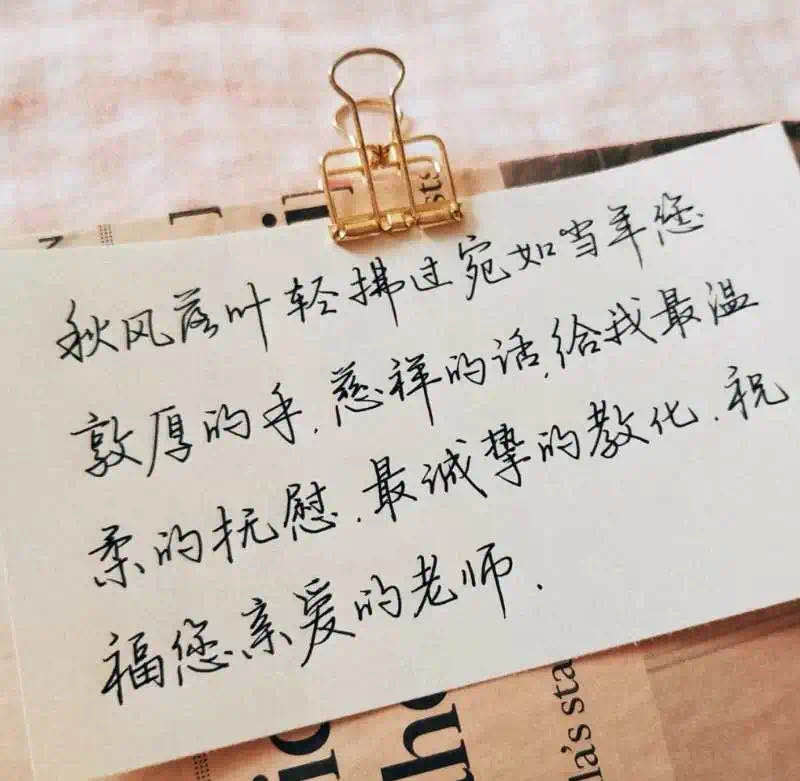 秋风落叶轻拂过宛如当年您
敦厚的手.慈祥的话.给我最温
柔的抚慰.最诚挚的教化.祝
福您亲爱的老师.
sta
la's sta